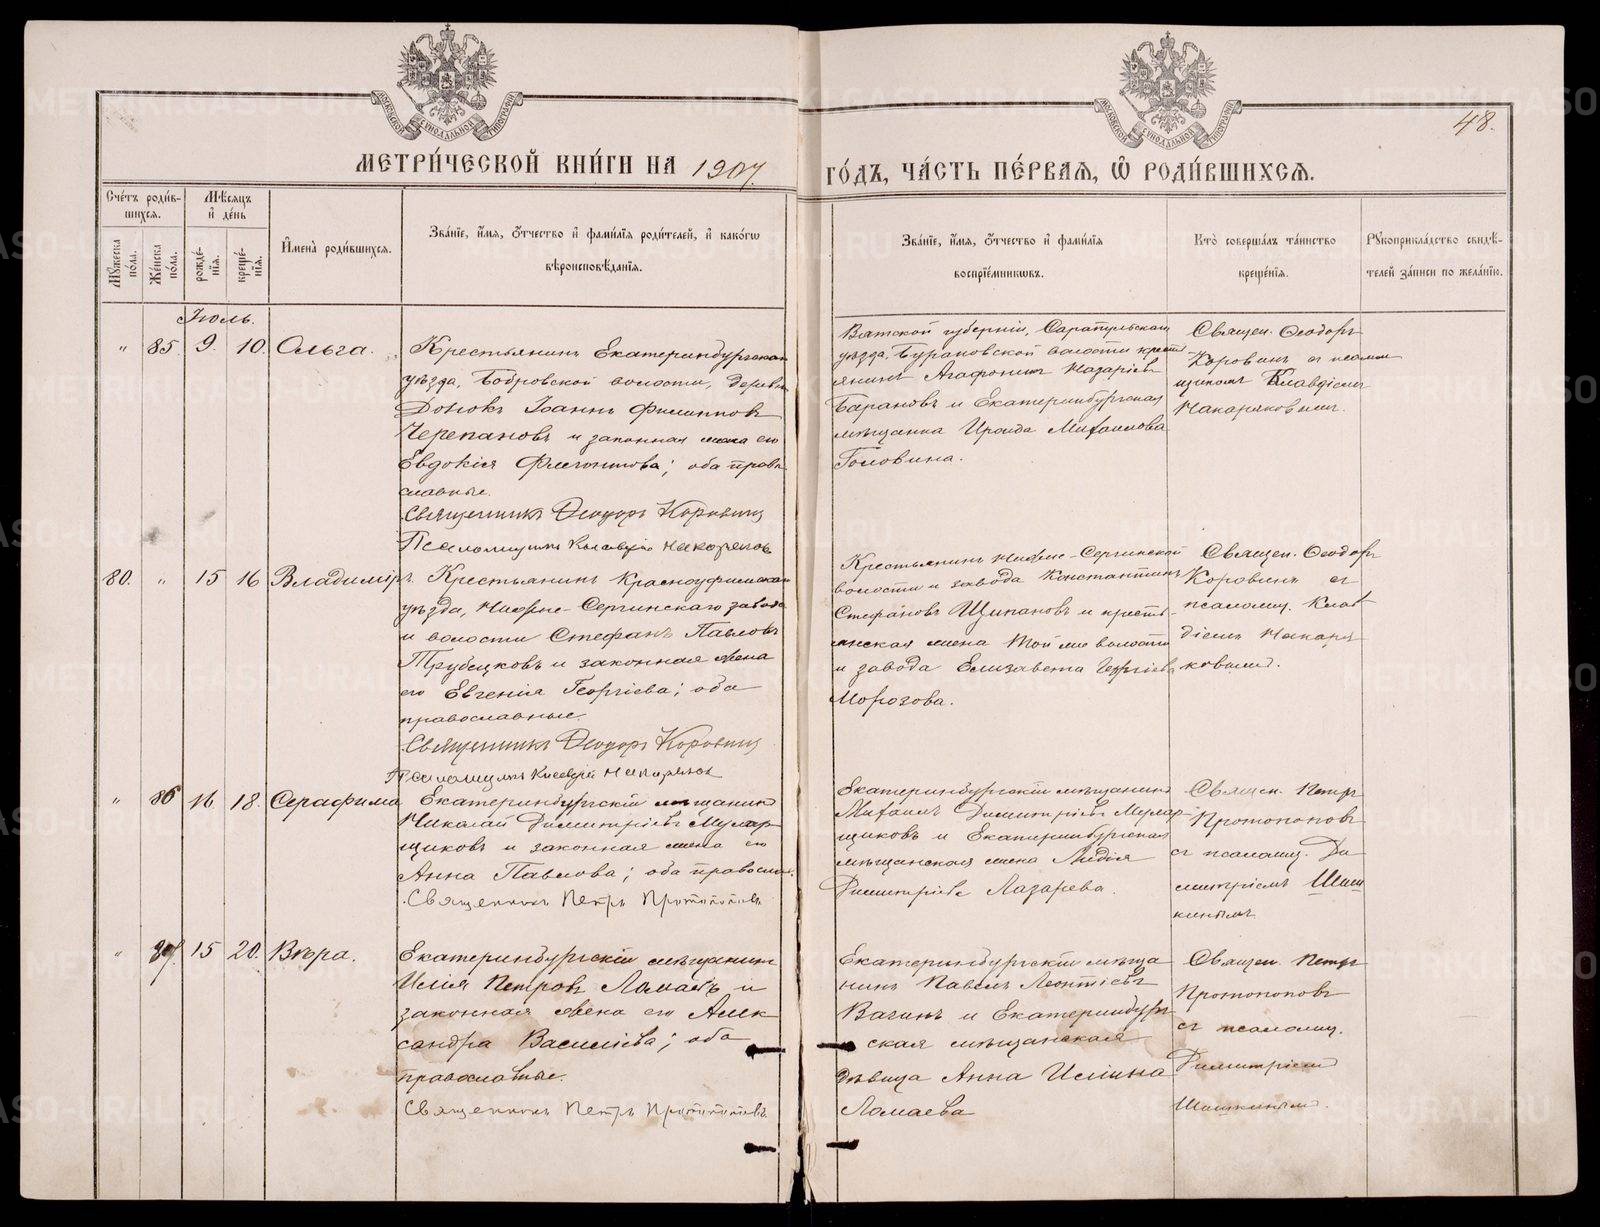 МОСКОВСКОЙ СѴНОДАЛЬНОЙ ТИПОГРАФІИ
МОСКОВСКОЙ СѴНОДАЛЬНОЙ ТИПОГРАФІИ
48.
МЕТРИ́ЧЕСКОЙ КНИ́ГИ НА 1907.
ГО́ДЪ, ЧА́СТЬ ПЕ́РВАЯ, Ѡ҆ РОДИ́ВШИХСЯ.
Сче́тъ роди́в-
шихся.
Мѣ́сяцъ
и҆ де́нь
Мꙋ́жеска по́ла.
Же́нска по́ла.
рожде́-
нїя.
креще́-
нїя.
И҆мена̀ роди́вшихся.
Зва́нїе, и҆́мя, ѻ҆́тчество и҆ фами́лїя роди́телей, и҆ како́гѡ
вѣроисповѣ́данїя.
Зва́нїе, и҆́мя, ѻ҆́тчество и҆ фами́лїя
воспрїе́мникѡвъ.
Кто̀ соверша́лъ та́инство
креще́нїя.
Рꙋкоприкла́дство свидѣ́-
телей за́писи по жела́нїю.
Іюль.
" 85. 9. 10. Ольга.
Крестьянинъ Екатеринбургскаго
уѣзда, Бобровской волости, деревни
Іоаннъ Филипповъ
Черепановъ и законная жена его
Евдокія Флегонтова; оба право
славные.
Священникъ Ѳеодоръ Коровинъ
Псаломщикъ Клавдій Накоряковъ
Вятской губерніи, Сарапульскаго
уѣзда, Бурановской волости крестъ
янинъ Агафонинъ Назаріевъ
Барановъ и Екатеринбургская
мѣщанка Ираида Михаилова
Головина.
Священ. Ѳеодоръ
Коровинъ съ псалом
щикомъ Клавдіемъ
Накоряковымъ.
80. " 15 16 Владиміръ.
Крестьянинъ Красноуфимскаго
уѣзда, Нижне-Сергинскаго завода
и волости Стефанъ Павловъ
Трубецковъ и законная жена
его Евгенія Георгіева; оба
православные.
Священникъ Ѳеодоръ Коровинъ
Псаломщикъ Клавдій Накоряковъ
Крестьянинъ Нижне-Сергинской
волости и завода Константинъ
Стефановъ Щипановъ и кресть-
янская жена той же волости
и завода Елизавета Георгіева
Морозова.
Священ. Ѳеодоръ
Коровинъ съ
псаломщ. Клав
діемъ Накоря
ковымъ.
" 86 16 18. Серафима
Екатеринбургскій мѣщанинъ
Николай Димитріевъ Мумар-
щиковъ и законная жена его
Анна Павлова; оба правосла.
Священникъ Петръ Протопоповъ
Екатеринбургскій мѣщанинъ
Михаилъ Димитріевъ Мумар-
щиковъ и Екатеринбургская
мѣщанская жена Лидія
Димитріева Лазарева.
Священ. Петръ
Протопоповъ
съ псаломщ. Ди
митріемъ Шиш
кинымъ
" 87. 15 20. Вѣра.
Екатеринбургскій мѣщанинъ
Илія Петровъ Ломаевъ и
законная жена его Алек
сандра Василіева; оба
православные.
Священникъ Петръ Протопоповъ
Екатеринбургскій мѣща
нинъ Павелъ Леонтіевъ
Вагинъ и Екатеринбург
ская мѣщанская
дѣвица Анна Иліина
Ломаева
Священ. Петръ
Протопоповъ
съ псаломщ.
Димитріемъ
Шишкинымъ.